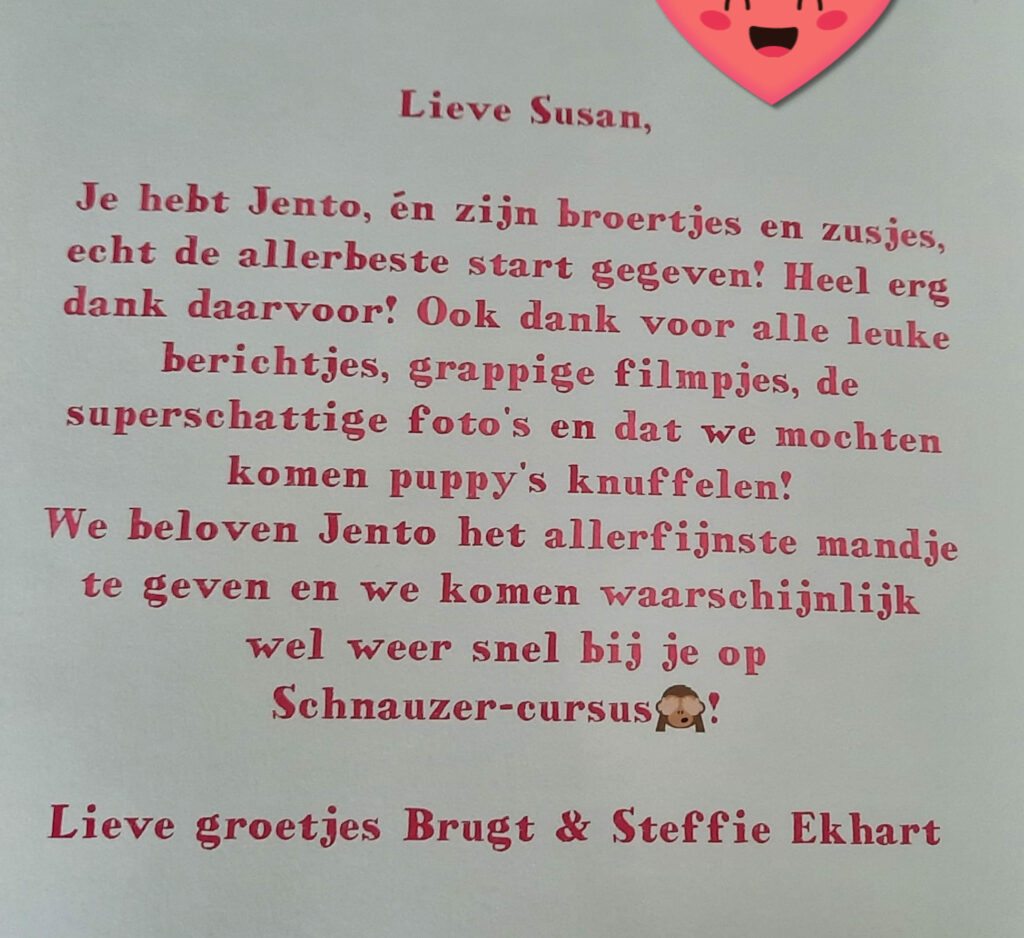 Lieve Susan,
Je hebt Jento, én zijn broertjes en zusjes,
echt de allerbeste start gegeven! Heel erg
dank daarvoor! Ook dank voor alle leuke
berichtjes, grappige filmpjes, de
superschattige foto's en dat we mochten
komen puppy's knuffelen!
We beloven Jento het allerfijnste mandje
te geven en we komen waarschijnlijk
wel weer snel bij je op
Schnauzer-cursus🙈!
Lieve groetjes Brugt & Steffie Ekhart